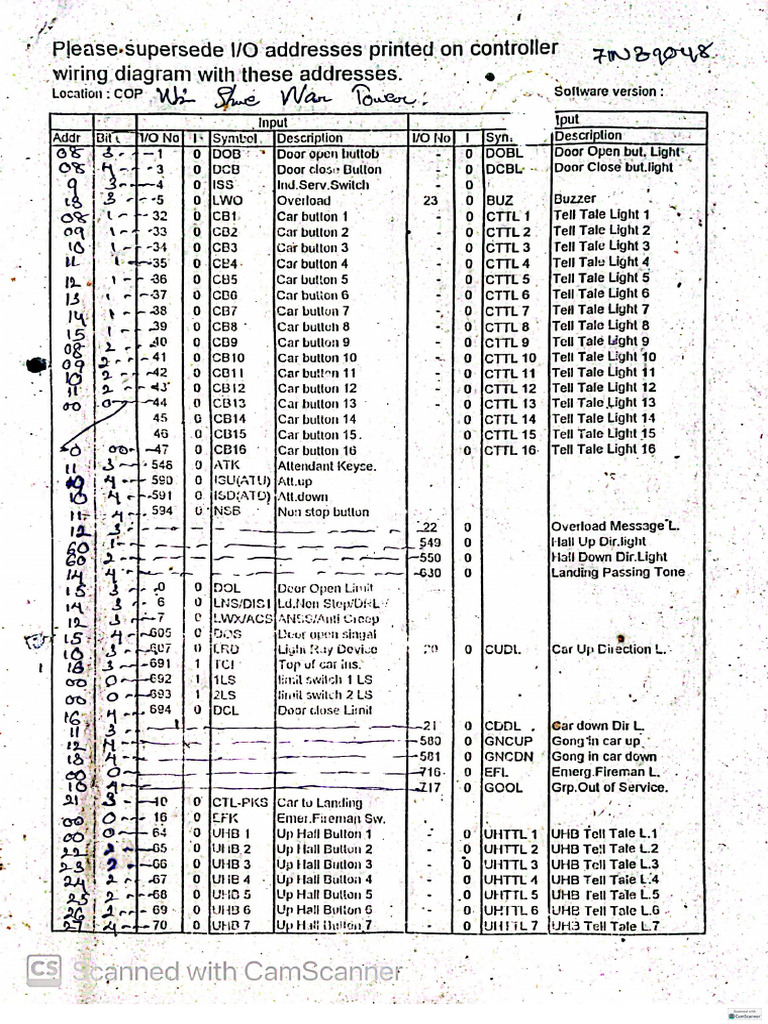 Please supersede I/O addresses printed on controller
wiring diagram with these addresses.
Location : COP
Software version :
Input
Addr Bit I/O No I Symbol Description I/O No I Description
08 3 1 0 DOB Door open buttob - 0 DOBL Door Open but. Light
08 4 3 0 DCB Door close Button - 0 DCBL Door Close but.light
9 3 4 0 ISS Ind.Serv.Switch - 0
18 3 5 0 LWO Overload 23 0 BUZ Buzzer
08 1 32 0 CB1 Car button 1 - 0 CTTL 1 Tell Tale Light 1
09 1 33 0 CB2 Car button 2 - 0 CTTL 2 Tell Tale Light 2
10 1 34 0 CB3 Car button 3 - 0 CTTL 3 Tell Tale Light 3
11 1 35 0 CB4 Car button 4 - 0 CTTL 4 Tell Tale Light 4
12 1 36 0 CB5 Car button 5 - 0 CTTL 5 Tell Tale Light 5
13 1 37 0 CB6 Car button 6 - 0 CTTL 6 Tell Tale Light 6
14 1 38 0 CB7 Car button 7 - 0 CTTL 7 Tell Tale Light 7
15 1 39 0 CB8 Car button 8 - 0 CTTL 8 Tell Tale Light 8
08 2 40 0 CB9 Car button 9 - 0 CTTL 9 Tell Tale Light 9
09 2 41 0 CB10 Car button 10 - 0 CTTL 10 Tell Tale Light 10
10 2 42 0 CB11 Car button 11 - 0 CTTL 11 Tell Tale Light 11
11 2 43 0 CB12 Car button 12 - 0 CTTL 12 Tell Tale Light 12
00 0 44 0 CB13 Car button 13 - 0 CTTL 13 Tell Tale Light 13
45 0 CB14 Car button 14 0 CTTL 14 Tell Tale Light 14
46 0 CB15 Car button 15. 0 CTTL 15 Tell Tale Light 15
0 00 47 0 CB16 Car button 16 0 CTTL 16 Tell Tale Light 16
11 3 548 0 ATK Attendant Keyse.
10 4 590 0 ISU(ATU) Att.up
10 4 591 0 ISD(ATD) Att.down
11 4 594 0 NSB Non stop button
12 3 22 0 Overload Message L.
60 1 549 0 Hall Up Dir.light
60 2 550 0 Hall Down Dir.Light
14 4 630 0 Landing Passing Tone
15 3 0 0 DOL Door Open Limit
14 3 6 0 LNS/DIS1 Ld.Non Stop/DRL
12 3 7 0 LWX/ACS ANSS/Anti Creep
15 4 605 0 DOS Door open singal
10 3 607 0 LRD Light Ray Device 20 0 CUDL Car Up Direction L.
16 3 691 1 TCI Top of car ins.
00 0 692 1 1LS limit switch 1 LS
00 0 693 1 2LS limit switch 2 LS
16 4 694 0 DCL Door close Limit
11 3 21 0 CDDL Car down Dir L.
12 4 580 0 GNCUP Gong in car up
18 4 581 0 GNCDN Gong in car down
00 0 716 0 EFL Emerg.Fireman L.
10 4 717 0 GOOL Grp.Out of Service.
21 3 40 0 CTL-PKS Car to Landing
00 0 16 0 EFK Emer.Fireman Sw.
00 0 64 0 UHB 1 Up Hall Button 1 - 0 UHTTL 1 UHB Tell Tale L.1
22 2 65 0 UHB 2 Up Hall Button 2 - 0 UHTTL 2 UHB Tell Tale L.2
23 2 66 0 UHB 3 Up Hall Button 3 - 0 UHTTL 3 UHB Tell Tale L.3
24 2 67 0 UHB 4 Up Hall Button 4 - 0 UHTTL 4 UHB Tell Tale L.4
25 2 68 0 UHB 5 Up Hall Button 5 - 0 UHTTL 5 UHB Tell Tale L.5
26 2 69 0 UHB 6 Up Hall Button 6 - 0 UHTTL 6 UHB Tell Tale L.6
27 4 70 0 UHB 7 Up Hall Button 7 - 0 UHTTL 7 UHB Tell Tale L.7
CS Scanned with CamScanner
Scanned with
CamScanner